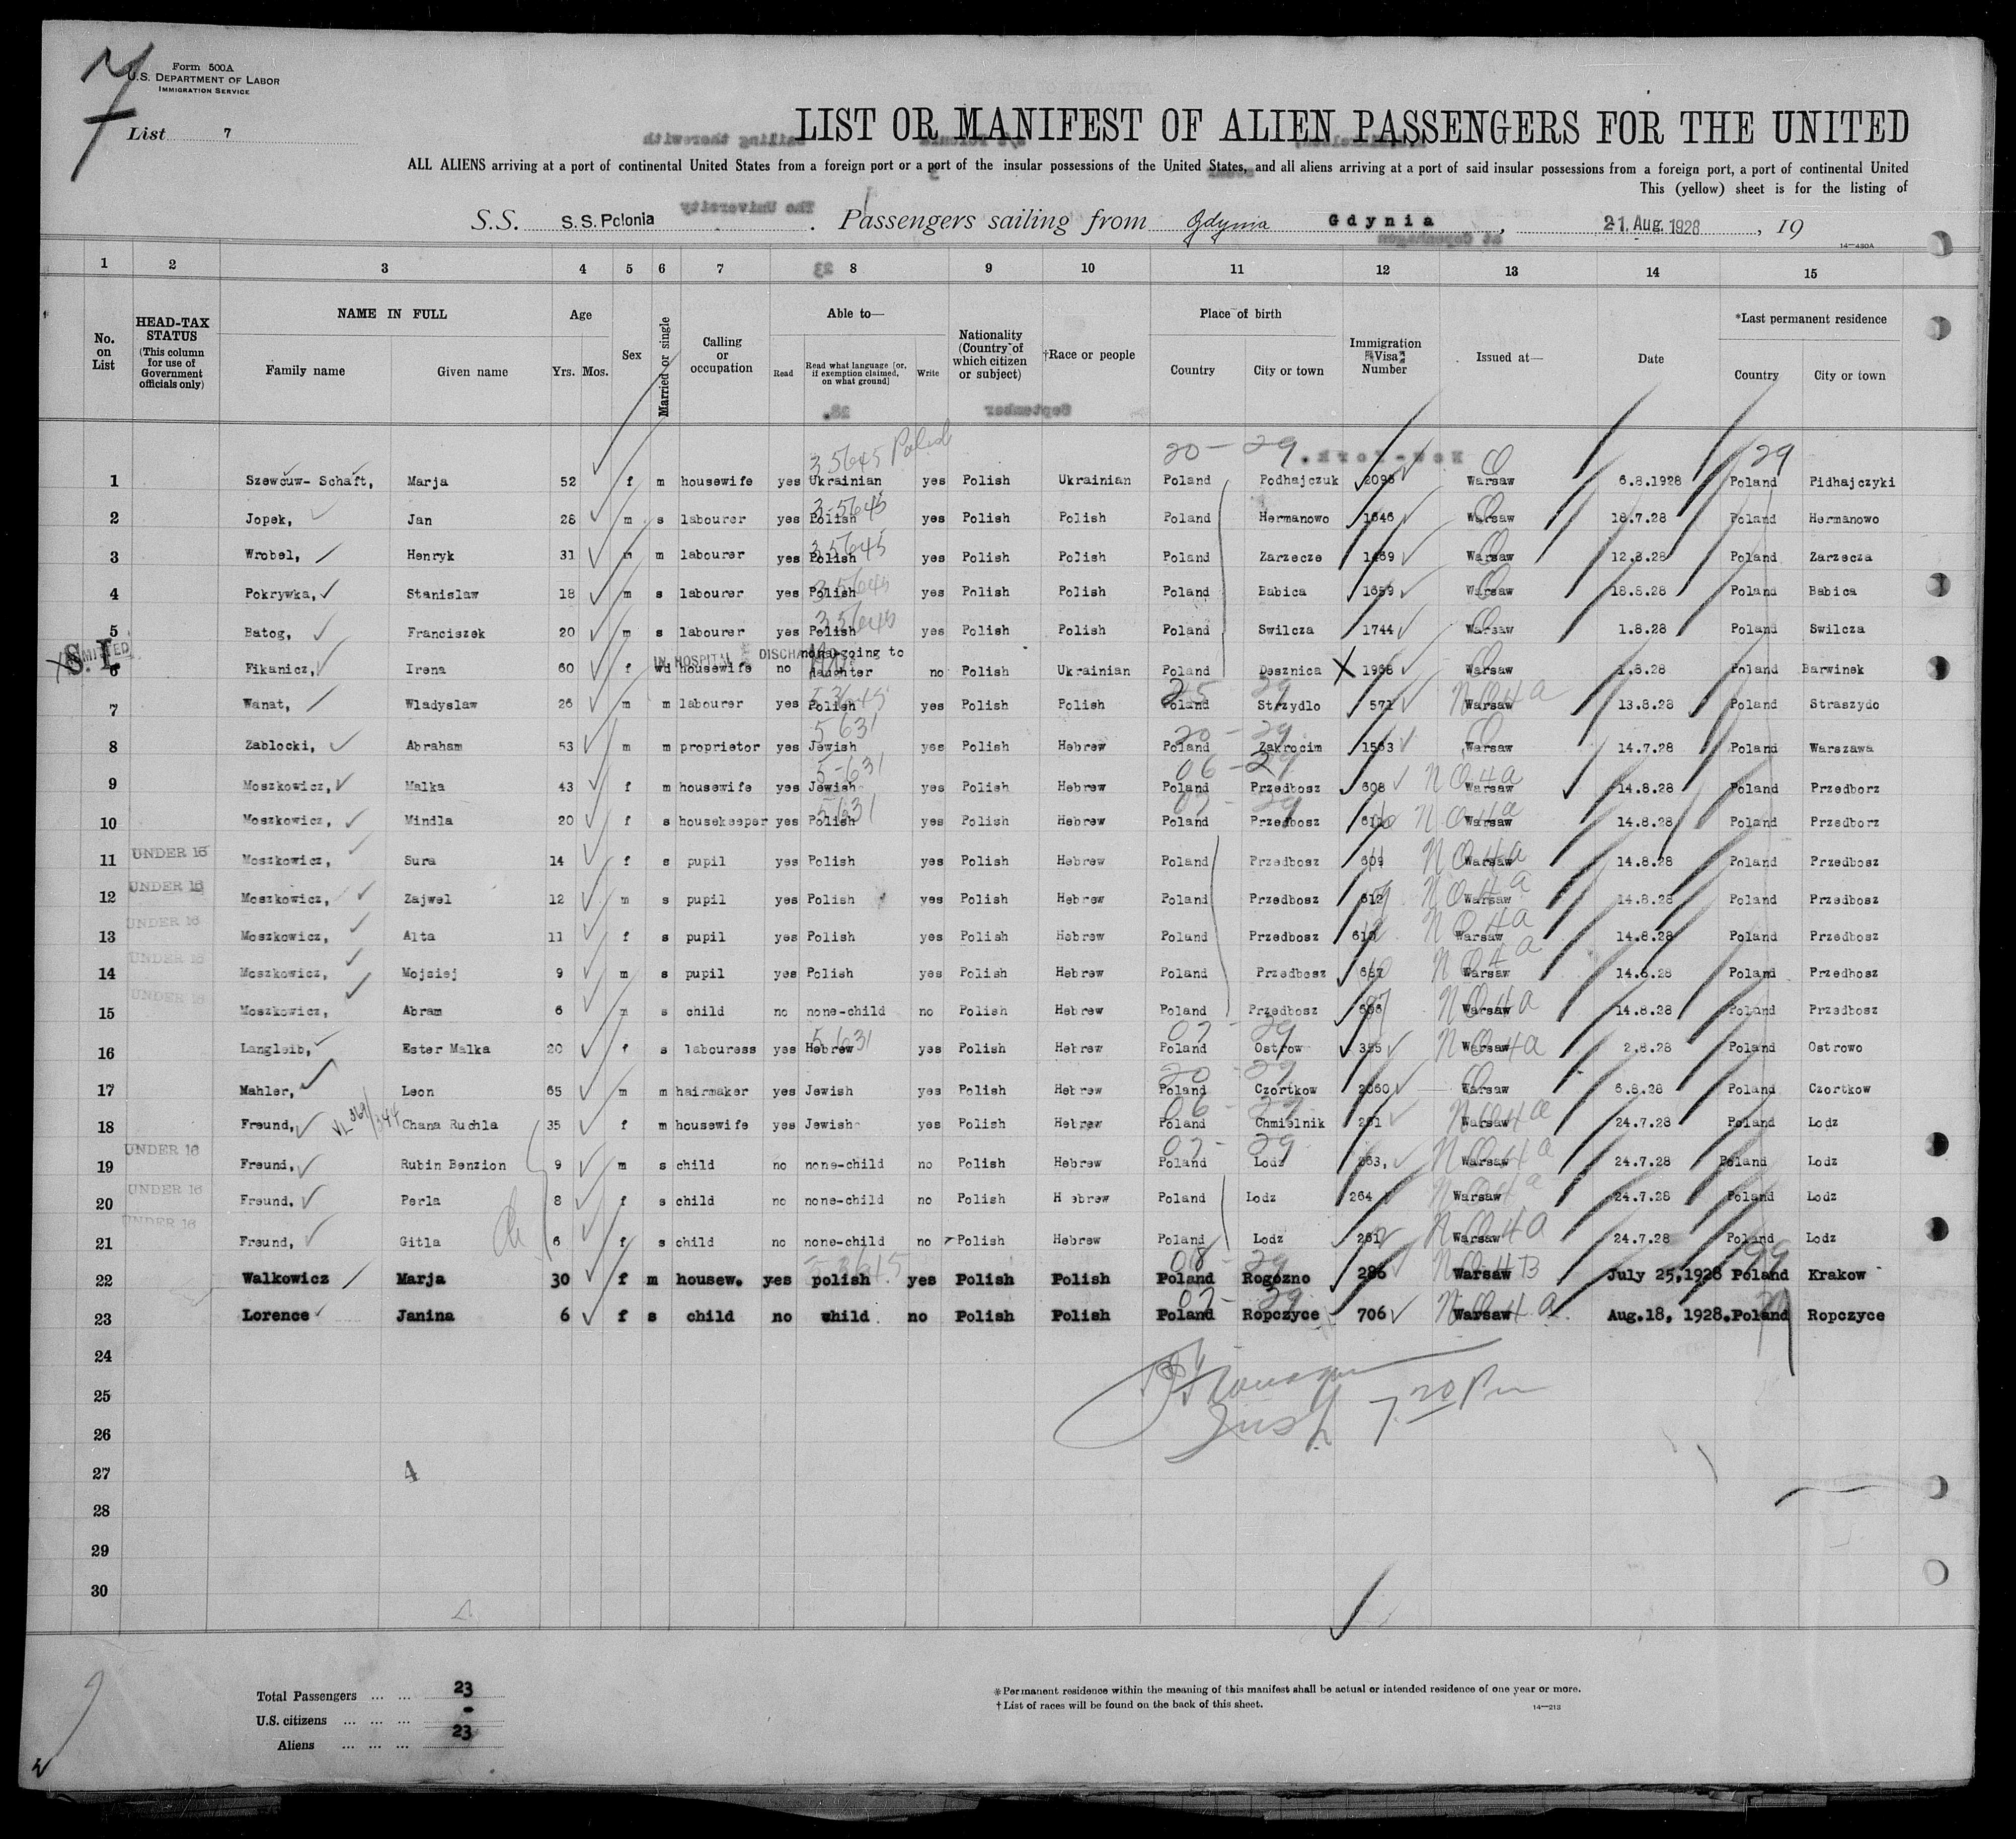 Form 500A
U.S. DEPARTMENT OF LABOR
IMMIGRATION SERVICE
List 7
LIST OR MANIFEST OF ALIEN PASSENGERS FOR THE UNITED
ALL ALIENS arriving at a port of continental United States from a foreign port or a port of the insular possessions of the United States, and all aliens arriving at a port of said insular possessions from a foreign port, a port of continental United
This (yellow) sheet is for the listing of
S.S. S.S. Polonia. Passengers sailing from Gdynia Gdynia, 21. Aug. 1928, 19
14—430A
1 2 3 4 5 6 7 8 9 10 11 12 13 14 15
No. on List HEAD-TAX STATUS (This column for use of Government officials only) NAME IN FULL Family name Given name Age Yrs. Mos. Sex Married or single Calling or occupation Able to— Read Read what language [or, if exemption claimed, on what ground] Write Nationality (Country of which citizen or subject) †Race or people Place of birth Country City or town Immigration Visa Number Issued at— Date *Last permanent residence Country City or town
20 - 29 29
1 Szewcuw- Schaft, Marja 52 f m housewife yes Ukrainian yes Polish Ukrainian Poland Podhajczuk 2095 Warsaw 6.8.1928 Poland Pidhajczyki
2 Jopek, Jan 28 m s labourer yes Polish yes Polish Polish Poland Hermanowo 1646 Warsaw 18.7.28 Poland Hermanowo
3 Wrobel, Henryk 31 m m labourer yes Polish yes Polish Polish Poland Zarzecze 1469 Warsaw 12.8.28 Poland Zarzecza
4 Pokrywka, Stanislaw 18 m s labourer yes Polish yes Polish Polish Poland Babica 1659 Warsaw 18.8.28 Poland Babica
5 Batog, Franciszek 20 m s labourer yes Polish yes Polish Polish Poland Swilcza 1744 Warsaw 1.8.28 Poland Swilcza
S.I. ADMITTED IN HOSPITAL
6 Fikanicz, Irena 60 f wd housewife no none-going to daughter no Polish Ukrainian Poland Desznica 1968 Warsaw 1.8.28 Poland Barwinek
7 Wanat, Wladyslaw 26 m m labourer yes Polish yes Polish Polish Poland Strzydlo 571 Warsaw 13.8.28 Poland Straszydo
8 Zablocki, Abraham 53 m m proprietor yes Jewish yes Polish Hebrew Poland Zakrocim 1563 Warsaw 14.7.28 Poland Warszawa
9 Moszkowicz, Malka 43 f m housewife yes Jewish yes Polish Hebrew Poland Przedbosz 608 Warsaw 14.8.28 Poland Przedborz
10 Moszkowicz, Mindla 20 f s housekeeper yes Polish yes Polish Hebrew Poland Przedbosz Warsaw 14.8.28 Poland Przedborz
11 UNDER 16 Moszkowicz, Sura 14 f s pupil yes Polish yes Polish Hebrew Poland Przedbosz Warsaw 14.8.28 Poland Przedbosz
12 UNDER 16 Moszkowicz, Zajwel 12 m s pupil yes Polish yes Polish Hebrew Poland Przedbosz Warsaw 14.8.28 Poland Przedbosz
13 UNDER 16 Moszkowicz, Alta 11 f s pupil yes Polish yes Polish Hebrew Poland Przedbosz Warsaw 14.8.28 Poland Przedbosz
14 UNDER 16 Moszkowicz, Mojsiej 9 m s pupil yes Polish yes Polish Hebrew Poland Przedbosz Warsaw 14.8.28 Poland Przedbosz
15 UNDER 16 Moszkowicz, Abram 6 m s child no none-child no Polish Hebrew Poland Przedbosz Warsaw 14.8.28 Poland Przedbosz
16 Langleib, Ester Malka 20 f s labouress yes Hebrew yes Polish Hebrew Poland Ostrow 355 Warsaw 2.8.28 Poland Ostrowo
17 Mahler, Leon 65 m m hairmaker yes Jewish yes Polish Hebrew Poland Czortkow 2060 Warsaw 6.8.28 Poland Czortkow
18 Freund, Chana Ruchla 35 f m housewife yes Jewish yes Polish Hebrew Poland Chmielnik 261 Warsaw 24.7.28 Poland Lodz
19 UNDER 16 Freund, Rubin Benzion 9 m s child no none-child no Polish Hebrew Poland Lodz 263, Warsaw 24.7.28 Poland Lodz
20 UNDER 16 Freund, Perla 8 f s child no none-child no Polish Hebrew Poland Lodz 264 Warsaw 24.7.28 Poland Lodz
21 UNDER 16 Freund, Gitla 6 f s child no none-child no Polish Hebrew Poland Lodz Warsaw 24.7.28 Poland Lodz
22 Walkowicz Marja 30 f m housew. yes polish yes Polish Polish Poland Rogozno 286 Warsaw July 25,1928 Poland Krakow
23 Lorence Janina 6 f s child no child no Polish Polish Poland Ropczyce 706 Warsaw Aug.18, 1928. Poland Ropczyce
24
25
26
27
28
29
30
Total Passengers ... ... 23
U.S. citizens ... ... ... -
Aliens ... ... ... 23
*Permanent residence within the meaning of this manifest shall be actual or intended residence of one year or more.
†List of races will be found on the back of this sheet.
14—213